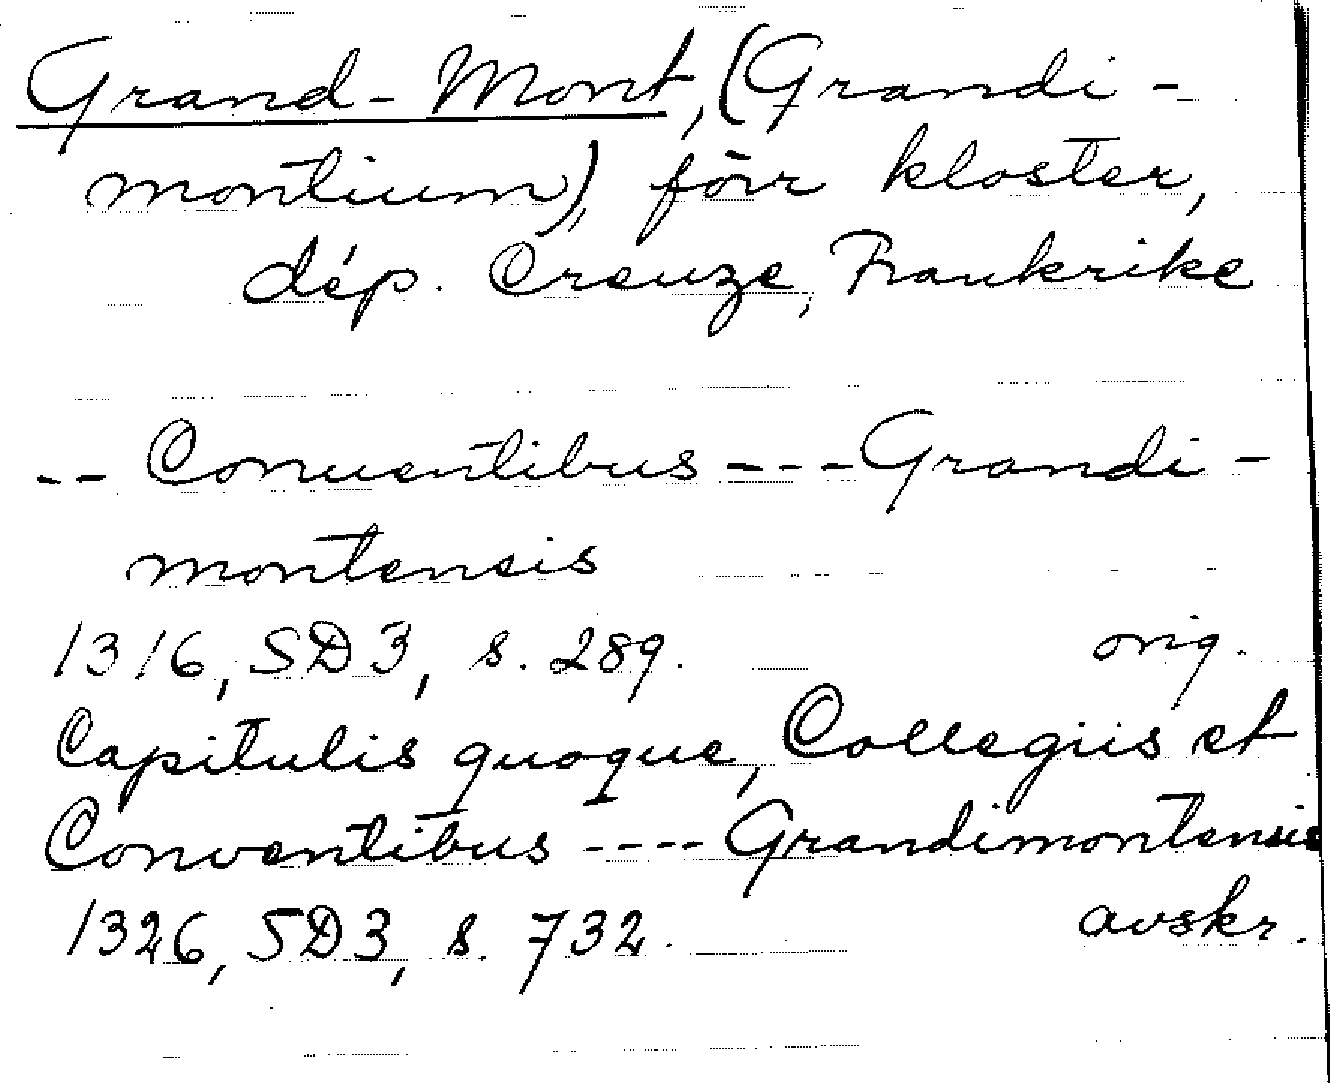 Grand-Mont, (Grandi-
montium), förr kloster,
dép. Creuze, Frankrike
-- Conuentibus --- Grandi-
montensis
1316, SD3, s. 289. orig.
Capitulis quoque, Collegiis et
Conventibus ---- Grandimontensis
1326, SD3, s. 732. avskr.